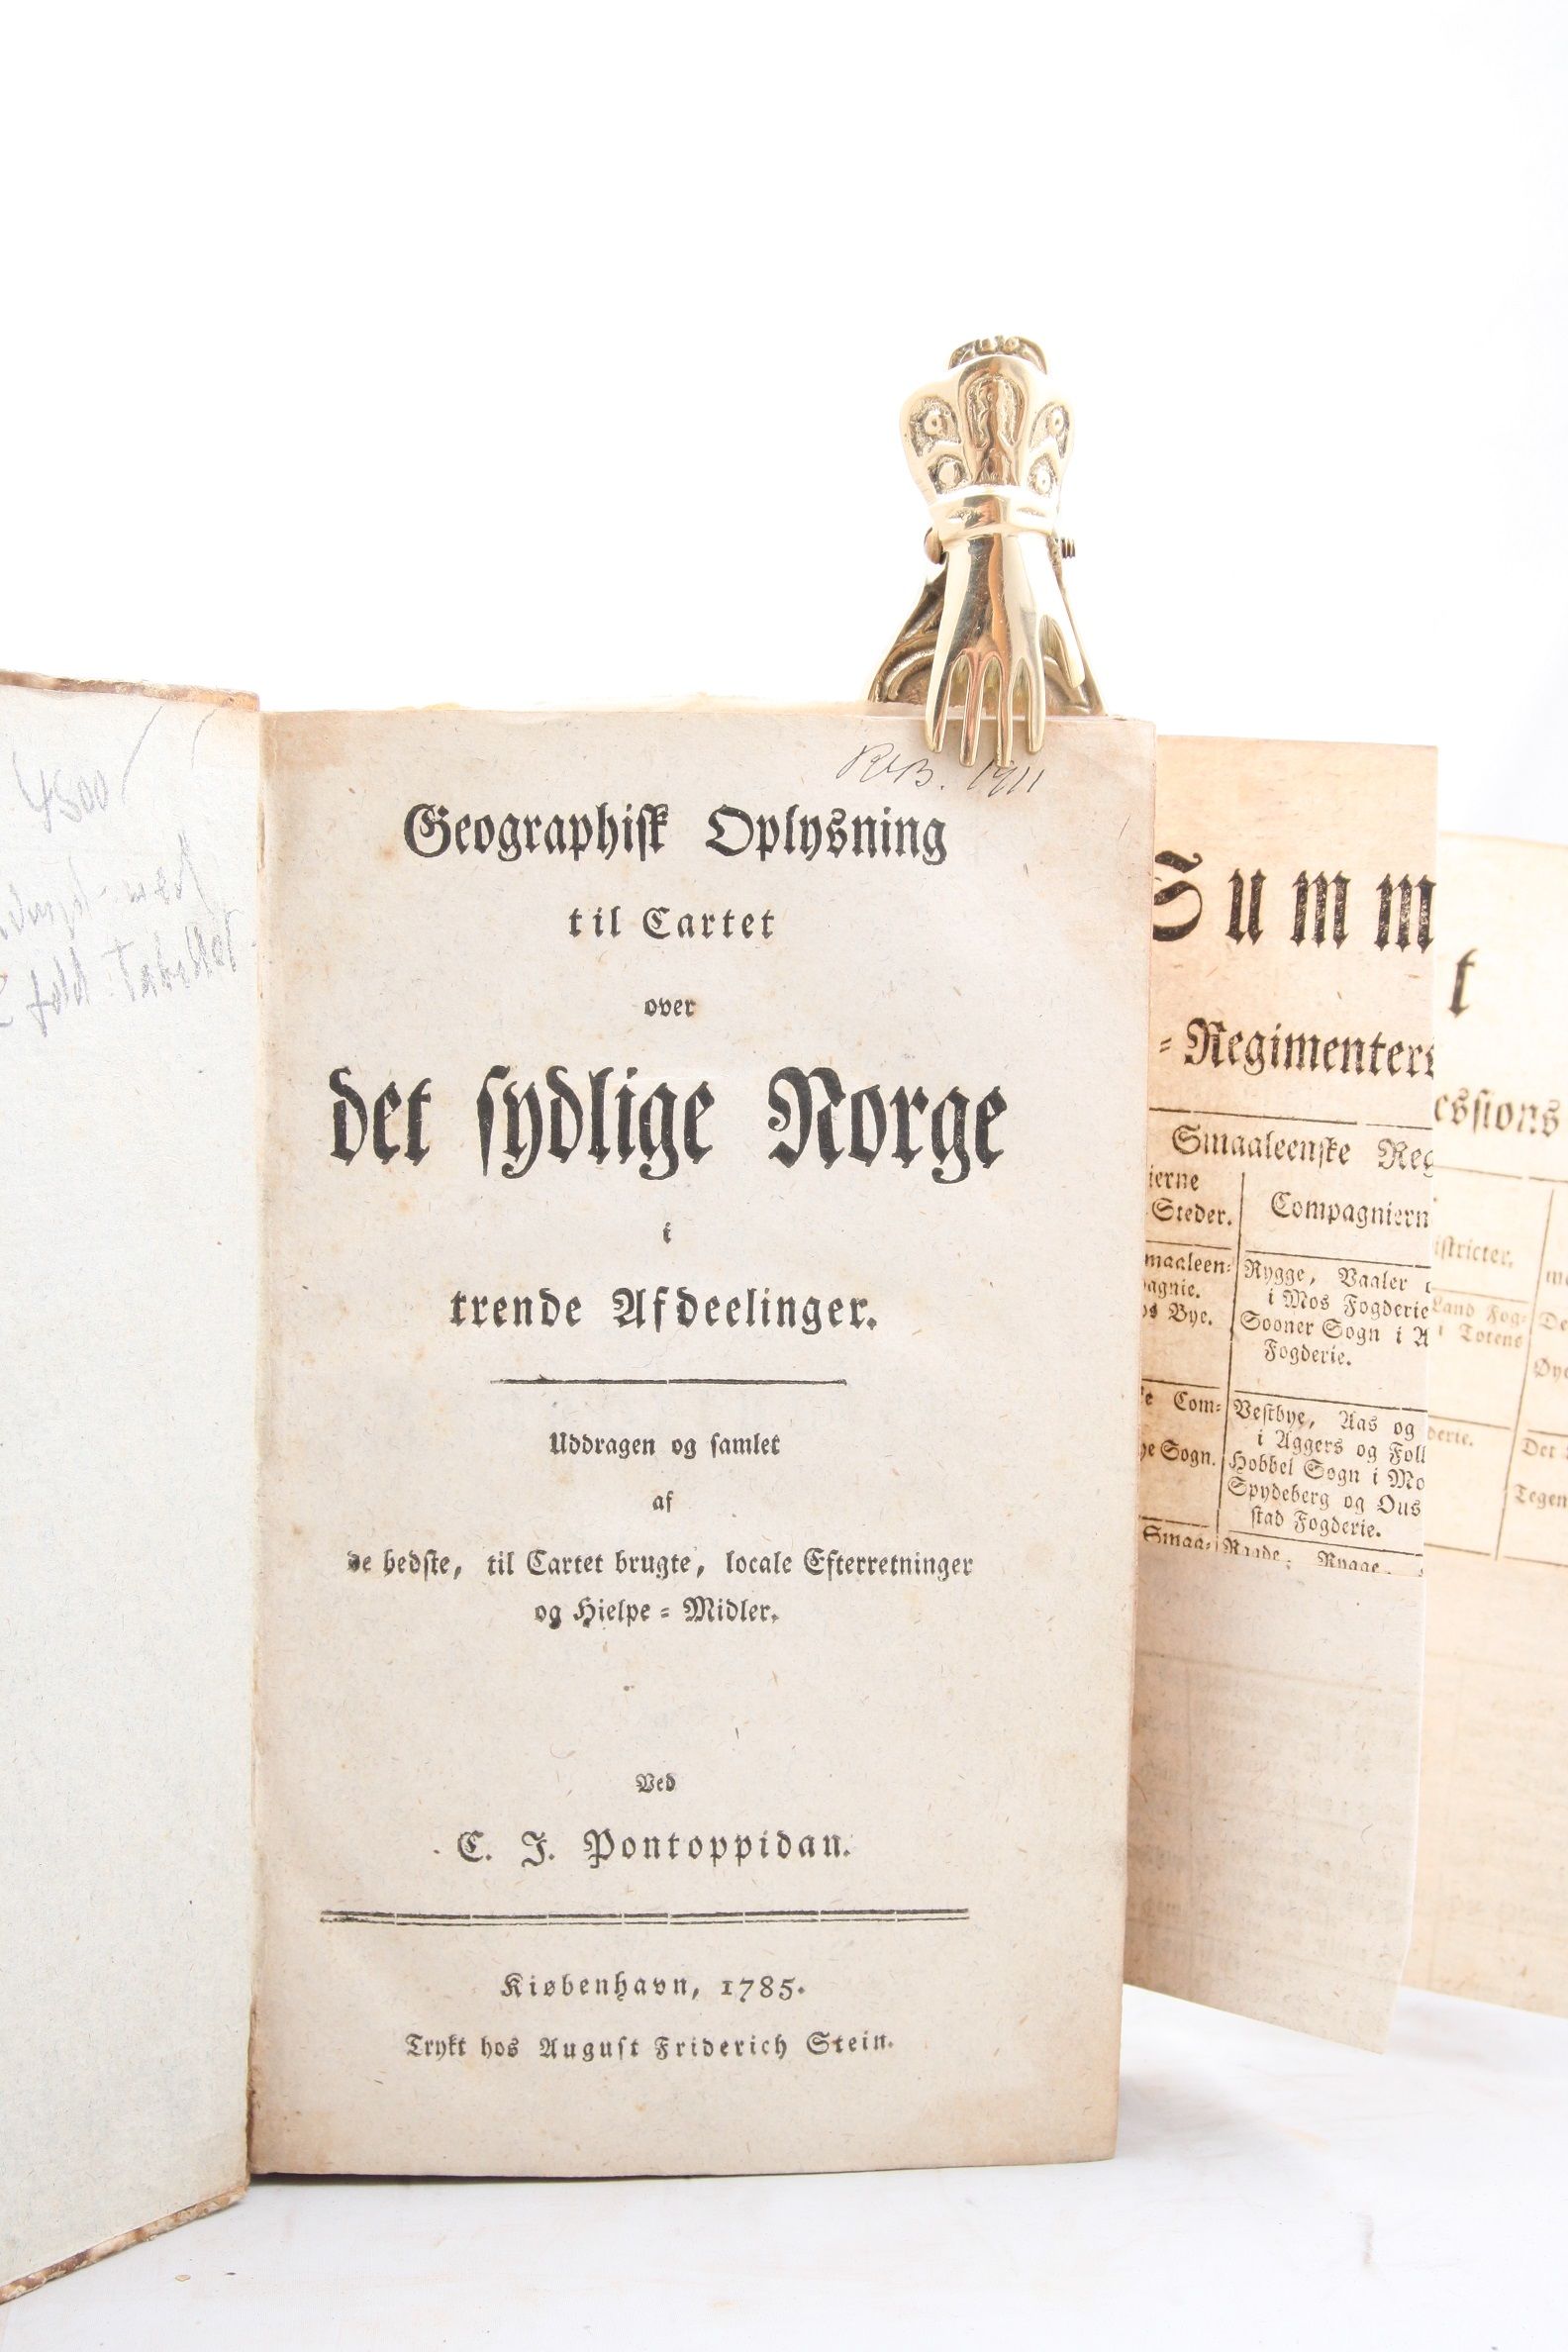 4500
fold. Tabeller
RvB. 1911
Geographisk Oplysning
til Cartet
over
det sydlige Norge
i
trende Afdeelinger.
Uddragen og samlet
af
de bedste, til Cartet brugte, locale Efterretninger
og Hielpe=Midler.
Ved
C. J. Pontoppidan.
Kiøbenhavn, 1785.
Trykt hos August Friderich Stein.
Summ
=Regimenters
Smaaleenske Reg
ierne
Steder.
Compagniern
maaleen=
pagnie.
os Bye.
Rygge, Vaaler
i Mos Fogderie
Sooner Sogn i A
Fogderie.
e Com=
ye Sogn.
Vestbye, Aas og
i Aggers og Foll
Hobbel Sogn i Mo
Spydeberg og Ous
stad Fogderie.
Smaa=
Raade, Rygge,
t
essions
istricter.
Land Fog=
i Totens
derie.
De
Øye
Det
Tegen